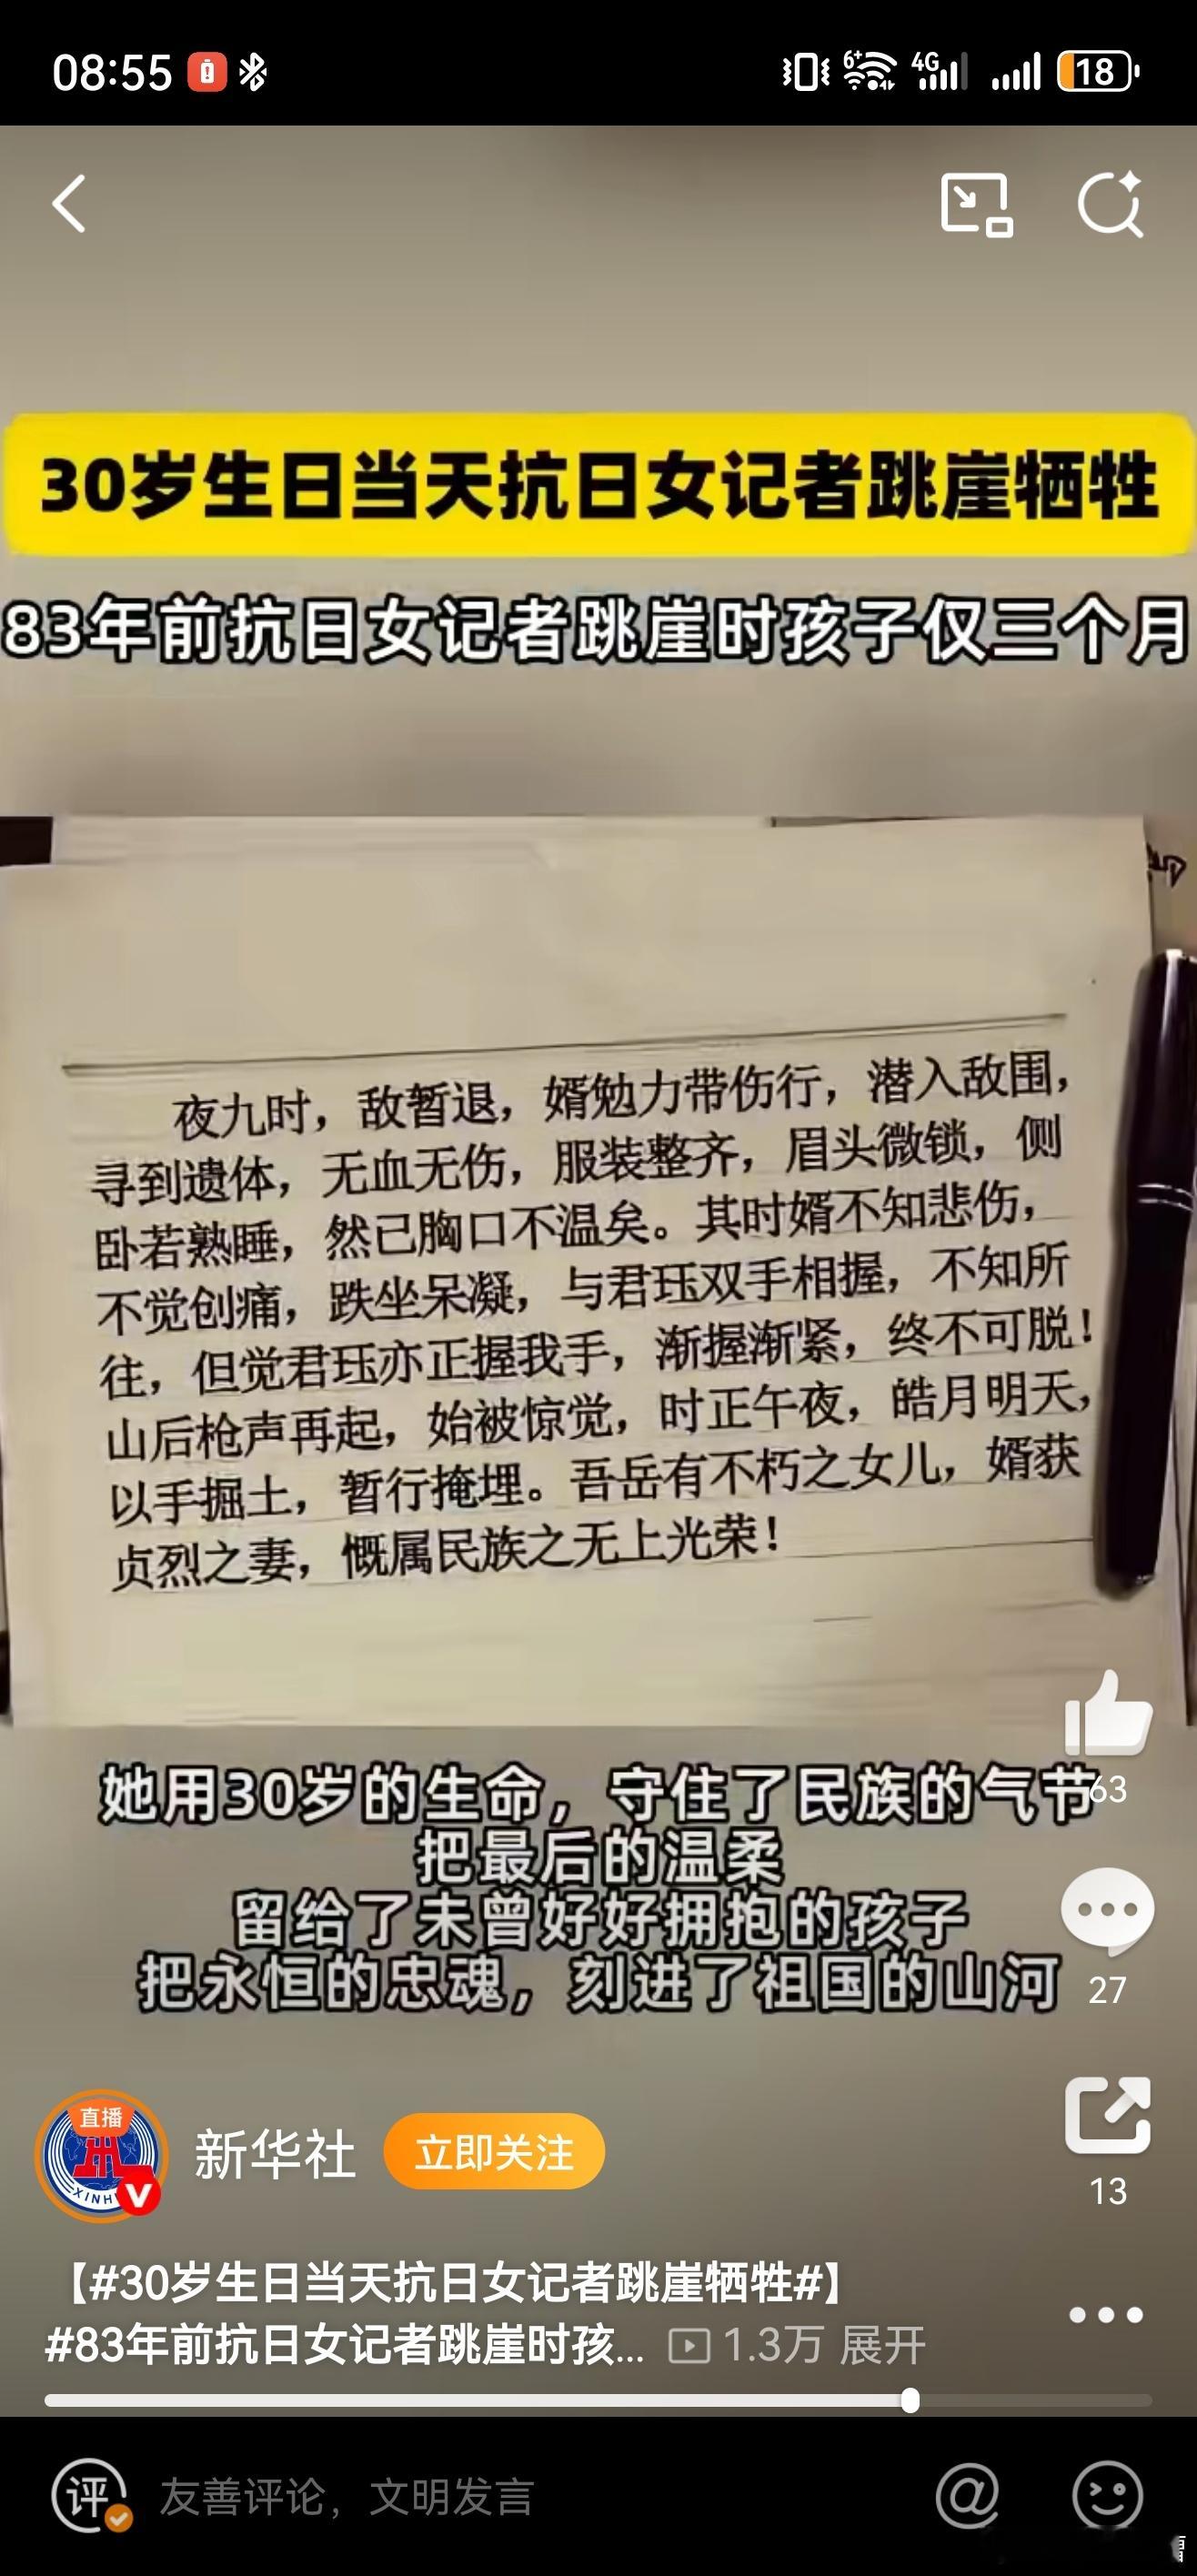 08:55
6+
4G
18
30岁生日当天抗日女记者跳崖牺牲
83年前抗日女记者跳崖时孩子仅三个月
夜九时，敌暂退，婿勉力带伤行，潜入敌围，
寻到遗体，无血无伤，服装整齐，眉头微锁，侧
卧若熟睡，然已胸口不温矣。其时婿不知悲伤，
不觉创痛，跌坐呆凝，与君珏双手相握，不知所
往，但觉君珏亦正握我手，渐握渐紧，终不可脱！
山后枪声再起，始被惊觉，时正午夜，皓月明天，
以手掘土，暂行掩埋。吾岳有不朽之女儿，婿获
贞烈之妻，慨属民族之无上光荣！
她用30岁的生命，守住了民族的气节
把最后的温柔
留给了未曾好好拥抱的孩子
把永恒的忠魂，刻进了祖国的山河
63
27
13
直播
XINH
V
新华社
立即关注
【#30岁生日当天抗日女记者跳崖牺牲#】
#83年前抗日女记者跳崖时孩... 1.3万 展开
评
友善评论，文明发言
@